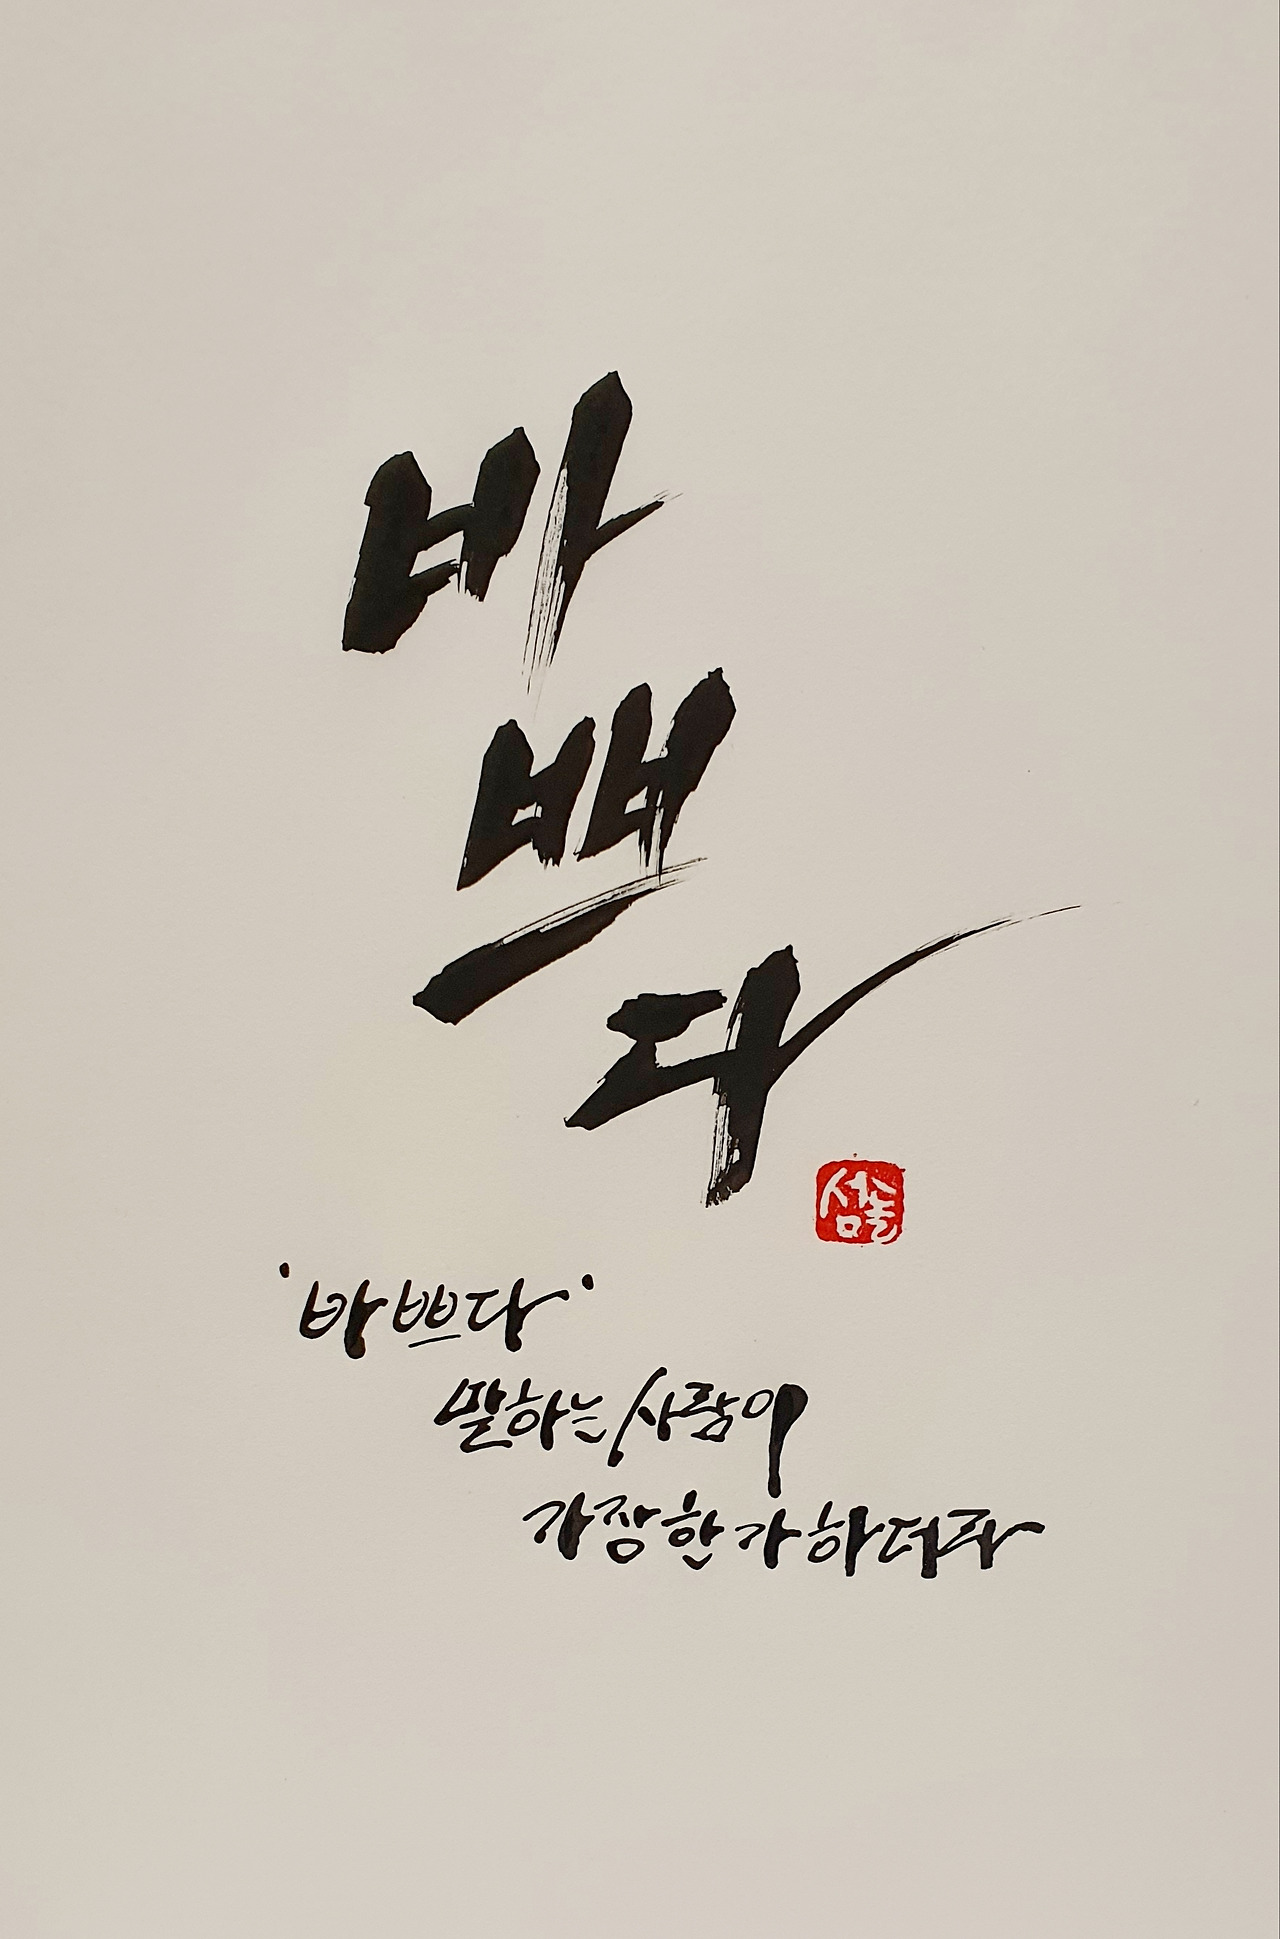 바
쁘
다
'바쁘다'
말하는 사람이
가장 한가하더라